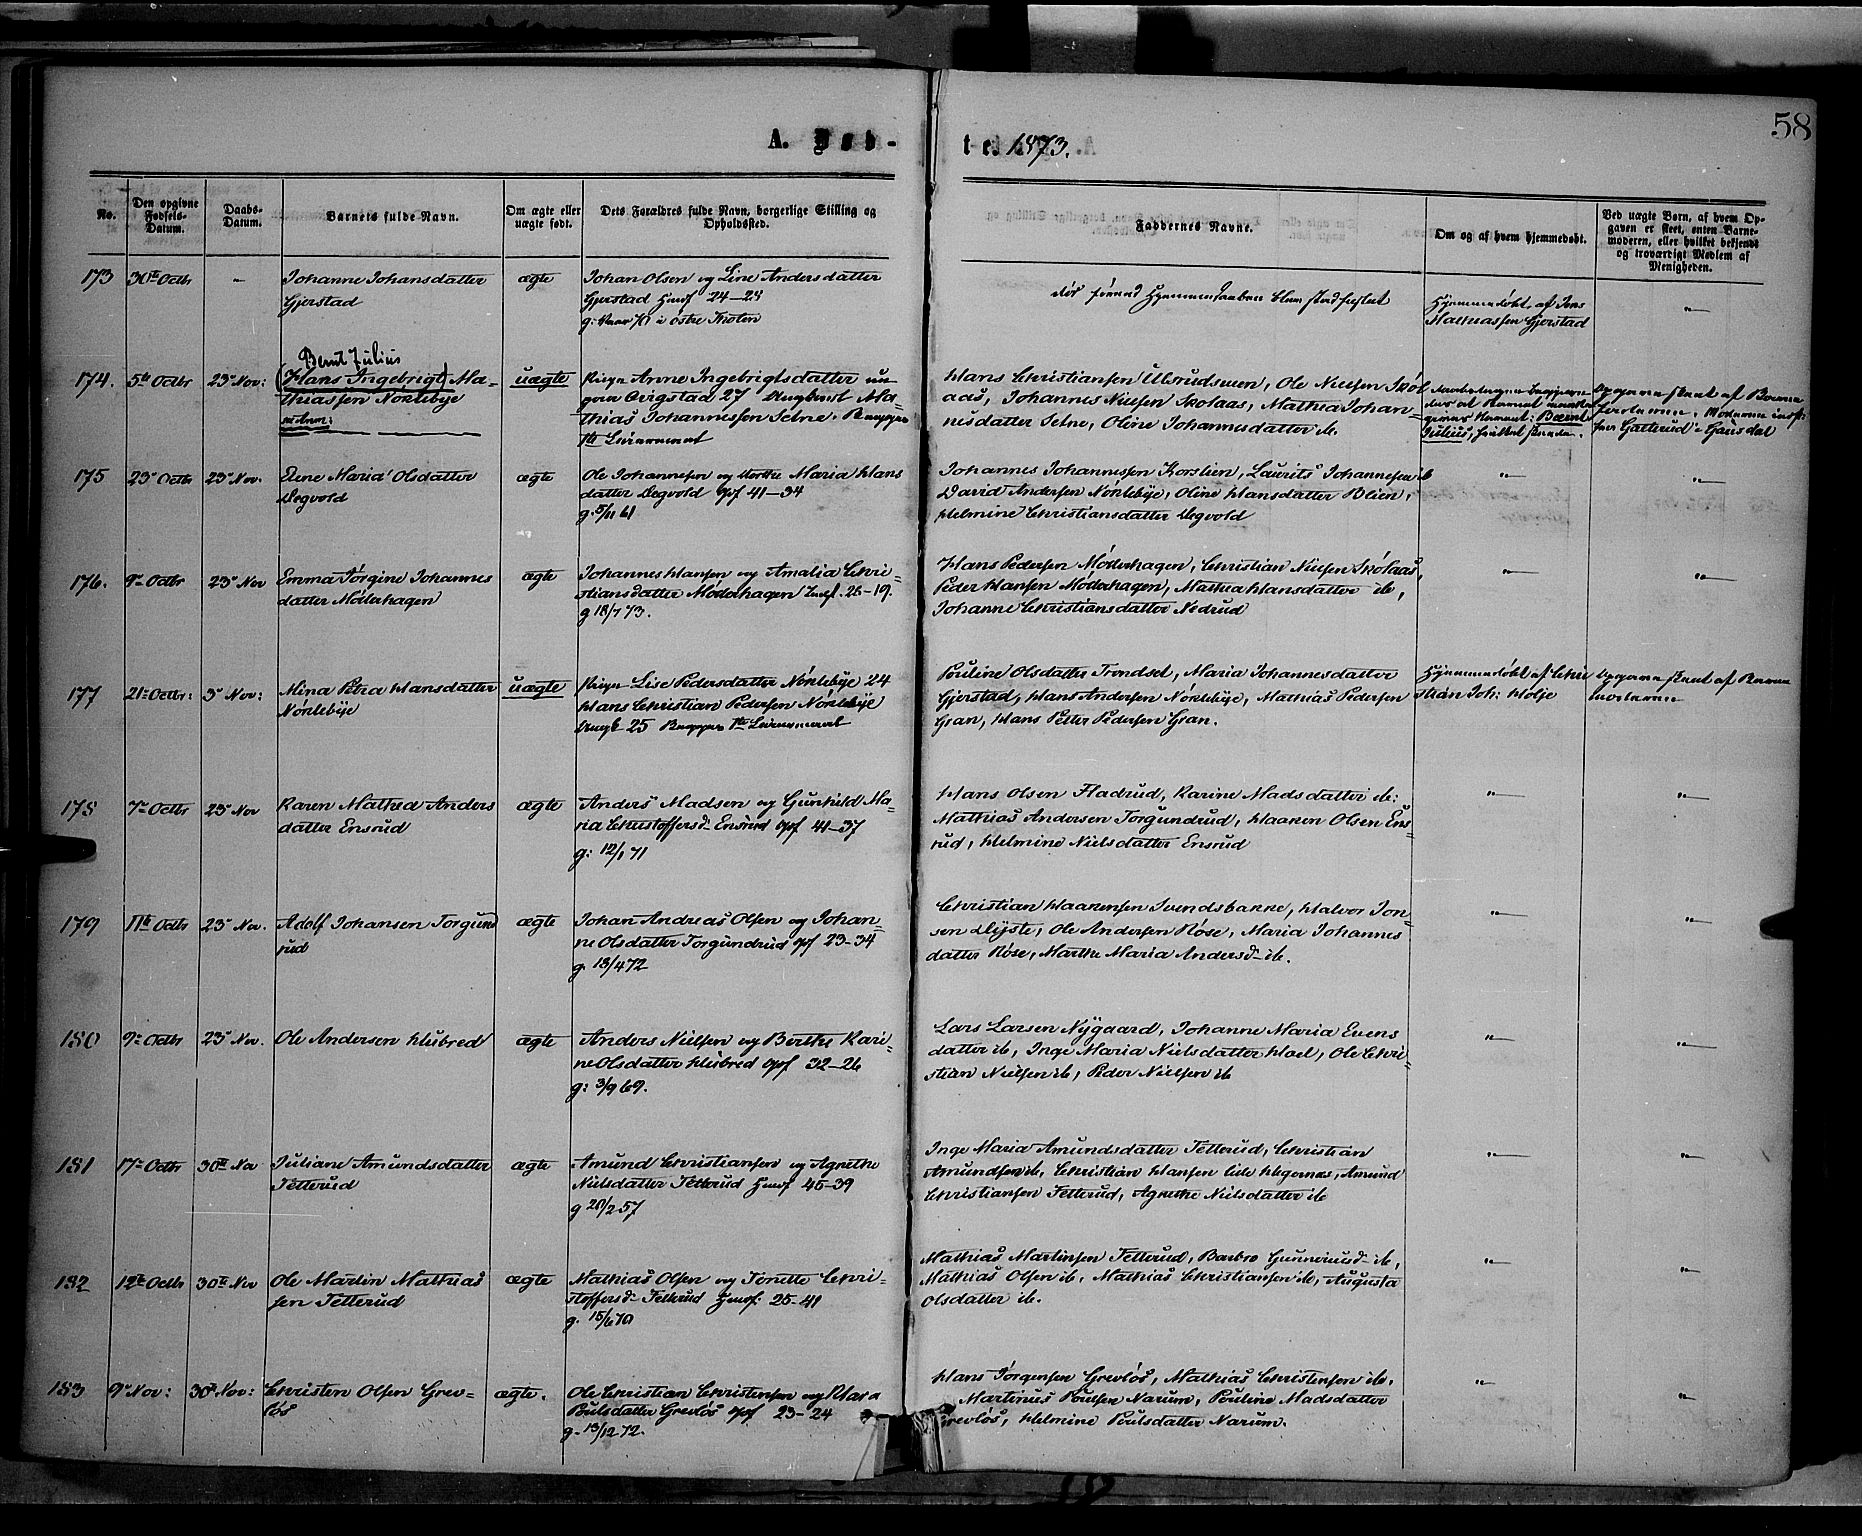 58
A. Døb-
te. 1873.
No.
Den opgivne Fødsels-Datum.
Daabs-Datum.
Barnets fulde Navn.
Om ægte eller uægte født.
Dets Forældres fulde Navn, borgerlige Stilling og Opholdssted.
Faddernes Navne.
Om og af hvem hjemmedøbt.
Ved uægte Børn, af hvem Op-
gaven er skeet, enten Barne-
moderen, eller hvilket bekjendt
og troværdigt Medlem af
Menigheden.
173 30te Octbr - Johanne Johansdatter
Gjerstad
ægte
Johan Olsen og Line Andersdatter
Gjerstad Husf 24-24
døde førend Hjemmedaaben blev stadfæstet
Hjemmedøbt af Jens
Mathiassen Gjerstad
174. 5te Octbr 23de Nov:
Bernt Julius
(Hans Ingebrigt) Ma-
thiassen Nøklebye
uægte
Pigen Anne Ingebrigtsdatter
27 Ungkarl Ma-
thias Johannessen Setne. Begges
1ste Leiermaal
Hans Christiansen Ulsrudsveen, Ole Nielsen Skøl
aas, Johannes Nielsen Skolaas, Mathia Johan-
nesdatter Setne, Oline Johannesdatter ib.
Julius
Opgaven skeet af Barne
175 23de Octbr 23de Nov.
Elene Maria Olsdatter
Degvold
ægte
Ole Johannesen og Marthe Maria Hans
datter Degvold gpf 41-34
g. 5/11 61
Johannes Johannessen Korslien, Laurits Johannesen ib
David Andersen Nøklebye, Oline Hansdatter Blien,
Helmine Christiansdatter Degvold
176. 9de Octbr 23de Nov
Emma Jørgine Johannes
datter Møderhagen
ægte
Johannes Hansen og Amalia Chri-
stiansdatter Møderhagen Indf. 26-19.
g 18/7 73.
Hans Pedersen Møderhagen, Christian Nielsen Skolaas,
Peder Hansen Møderhagen, Mathea Hansdatter ib,
Johanne Christiansdatter Nedrud
177 21de Octbr: 3de Nov:
Mina Petra Hansdatter
Nøklebye
uægte
Pigen Lise Pedersdatter Nøklebye 24
Hans Christian Pedersen Nøklebye
Ungk 25 Begges 1ste Leiermaal
Pouline Olsdatter Trondset, Maria Johannesdatter
Gjerstad, Hans Andersen Nøklebye, Mathias Pedersen
Gran, Hans Petter Pedersen Gran.
Hjemmedøbt af Chri
stian Joh: Holje
Opgaven skeet af Barne
moderen
178 7de Octbr 23de Nov
Karen Mathea Anders
datter Ensrud
ægte
Anders Madsen og Gunhild Ma-
ria Christoffersd- Ensrud gpf 41-37
g: 12/1 71
Hans Olsen Fladrud, Karine Madsdatter ib:
Mathias Andersen Torgundrud, Haaken Olsen Ens
rud, Helmine Nielsdatter Ensrud
179 11te Octbr 23de Nov.
Adolf Johansen Torgund
rud
ægte
Johan Andreas Olsen og Johan-
ne Olsdatter Torgundrud gpf 23-34
g. 13/4 72
Christian Haakensen Svendsbakke, Halvor Jon-
sen Dyste, Ole Andersen Røse, Maria Johannes
datter Røse, Marthe Maria Andersd- ib.
180 9de Octbr 23de Nov.
Ole Andersen Husbred
ægte
Anders Nielsen og Berthe Kari-
ne Olsdatter Husbred gpf 32-26
g: 3/9 69.
Lars Larsen Nygaard, Johanne Maria Evens
datter ib, Inge Maria Nielsdatter Hoel, Ole Chri-
stian Nielsen ib, Peder Nielsen ib
181 17de Octbr 30te Nov
Juliane Amundsdatter
Tetterud
ægte
Amund Christiansen og Agnethe
Nielsdatter Tetterud Husf 45-39
g 28/2 57
Inge Maria Amundsdatter Tetterud, Christian
Amundsen ib, Christian Hansen lille Hegernæs, Amund
Christiansen Tetterud, Agnethe Nielsdatter ib
182 12te Octbr 30te Nov
Ole Martin Mathias
sen Tetterud
ægte
Mathias Olsen og Jonette Chri-
stoffersd- Tetterud Husf. 25-41
g. 15/6 70
Mathias Martinsen Tetterud, Barbro Gunneriusd- ib,
Mathias Olsen ib, Mathias Christiansen ib, Augusta
Olsdatter ib.
183 9de Nov: 30te Nov:
Christen Olsen Grev-
løs
ægte.
Ole Christian Christensen og Klara
Poulsdatter Grevløs gpf 23-24
g- 13/12 72.
Hans Jørgensen Grevløs, Mathias Christensen ib.
Martinus Poulsen Narum, Pouline Madsdatter
Grevløs, Helmine Poulsdatter Narum.